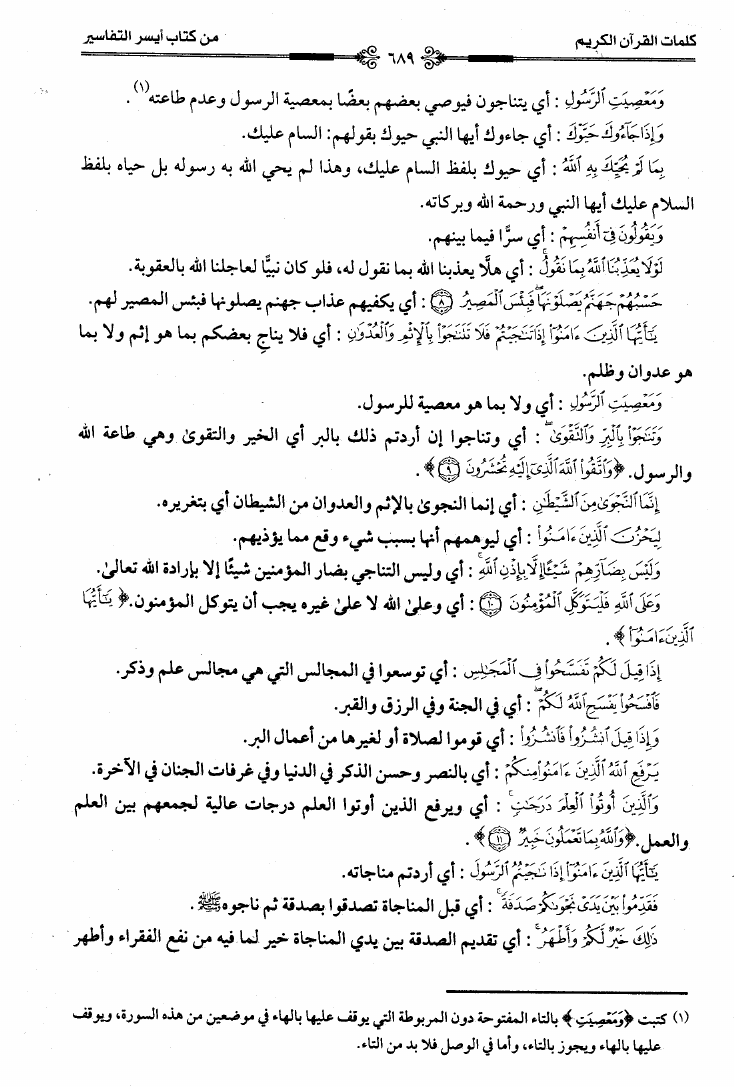 كلمات القرآن الكريم
٦٨٩
من كتاب أيسر التفاسير
وَمَعْصِيَتِ الرَّسُولِ : أي يتناجون فيوصي بعضهم بعضًا بمعصية الرسول وعدم طاعته(١).
وَإِذَا جَآءُوكَ حَيَّوْكَ : أي جاءوك أيها النبي حيوك بقولهم: السام عليك.
بِمَا لَمْ يُحَيِّكَ بِهِ اللَّهُ : أي حيوك بلفظ السام عليك، وهذا لم يحي الله به رسوله بل حياه بلفظ
السلام عليك أيها النبي ورحمة الله وبركاته.
وَيَقُولُونَ فِىٓ أَنفُسِهِمْ : أي سرًّا فيما بينهم.
لَوْلَا يُعَذِّبُنَا اللَّهُ بِمَا نَقُولُ ۚ : أي هلَّا يعذبنا الله بما نقول له، فلو كان نبيًّا لعاجلنا الله بالعقوبة.
حَسْبُهُمْ جَهَنَّمُ يَصْلَوْنَهَا ۖ فَبِئْسَ الْمَصِيرُ ۝٨ : أي يكفيهم عذاب جهنم يصلونها فبئس المصير لهم.
يَٰٓأَيُّهَا الَّذِينَ ءَامَنُوٓا۟ إِذَا تَنَٰجَيْتُمْ فَلَا تَتَنَٰجَوْا۟ بِالْإِثْمِ وَالْعُدْوَٰنِ : أي فلا يناجِ بعضكم بما هو إثم ولا بما
هو عدوان وظلم.
وَمَعْصِيَتِ الرَّسُولِ : أي ولا بما هو معصية للرسول.
وَتَنَٰجَوْا۟ بِالْبِرِّ وَالتَّقْوَىٰ ۖ : أي وتناجوا إن أردتم ذلك بالبر أي الخير والتقوىٰ وهي طاعة الله
والرسول. ﴿وَاتَّقُوا۟ اللَّهَ الَّذِىٓ إِلَيْهِ تُحْشَرُونَ ۝٩﴾.
إِنَّمَا النَّجْوَىٰ مِنَ الشَّيْطَٰنِ : أي إنما النجوىٰ بالإثم والعدوان من الشيطان أي بتغريره.
لِيَحْزُنَ الَّذِينَ ءَامَنُوا۟ : أي ليوهمهم أنها بسبب شيء وقع مما يؤذيهم.
وَلَيْسَ بِضَآرِّهِمْ شَيْـًٔا إِلَّا بِإِذْنِ اللَّهِ ۚ : أي وليس التناجي بضار المؤمنين شيئًا إلا بإرادة الله تعالىٰ.
وَعَلَى اللَّهِ فَلْيَتَوَكَّلِ الْمُؤْمِنُونَ ۝١٠ : أي وعلىٰ الله لا علىٰ غيره يجب أن يتوكل المؤمنون. ﴿يَٰٓأَيُّهَا
الَّذِينَ ءَامَنُوٓا۟﴾ .
إِذَا قِيلَ لَكُمْ تَفَسَّحُوا۟ فِى الْمَجَٰلِسِ : أي توسعوا في المجالس التي هي مجالس علم وذكر.
فَافْسَحُوا۟ يَفْسَحِ اللَّهُ لَكُمْ ۖ : أي في الجنة وفي الرزق والقبر.
وَإِذَا قِيلَ انشُزُوا۟ فَانشُزُوا۟ : أي قوموا لصلاة أو لغيرها من أعمال البر.
يَرْفَعِ اللَّهُ الَّذِينَ ءَامَنُوا۟ مِنكُمْ : أي بالنصر وحسن الذكر في الدنيا وفي غرفات الجنان في الآخرة.
وَالَّذِينَ أُوتُوا۟ الْعِلْمَ دَرَجَٰتٍ ۚ : أي ويرفع الذين أوتوا العلم درجات عالية لجمعهم بين العلم
والعمل. ﴿وَاللَّهُ بِمَا تَعْمَلُونَ خَبِيرٌ ۝١١﴾ .
يَٰٓأَيُّهَا الَّذِينَ ءَامَنُوٓا۟ إِذَا نَٰجَيْتُمُ الرَّسُولَ : أي أردتم مناجاته.
فَقَدِّمُوا۟ بَيْنَ يَدَىْ نَجْوَىٰكُمْ صَدَقَةً ۚ : أي قبل المناجاة تصدقوا بصدقة ثم ناجوه ﷺ .
ذَٰلِكَ خَيْرٌ لَّكُمْ وَأَطْهَرُ ۚ : أي تقديم الصدقة بين يدي المناجاة خير لما فيه من نفع الفقراء وأطهر
(١) كتبت ﴿وَمَعْصِيَتِ﴾ بالتاء المفتوحة دون المربوطة التي يوقف عليها بالهاء في موضعين من هذه السورة، ويوقف
عليها بالهاء ويجوز بالتاء، وأما في الوصل فلا بد من التاء.